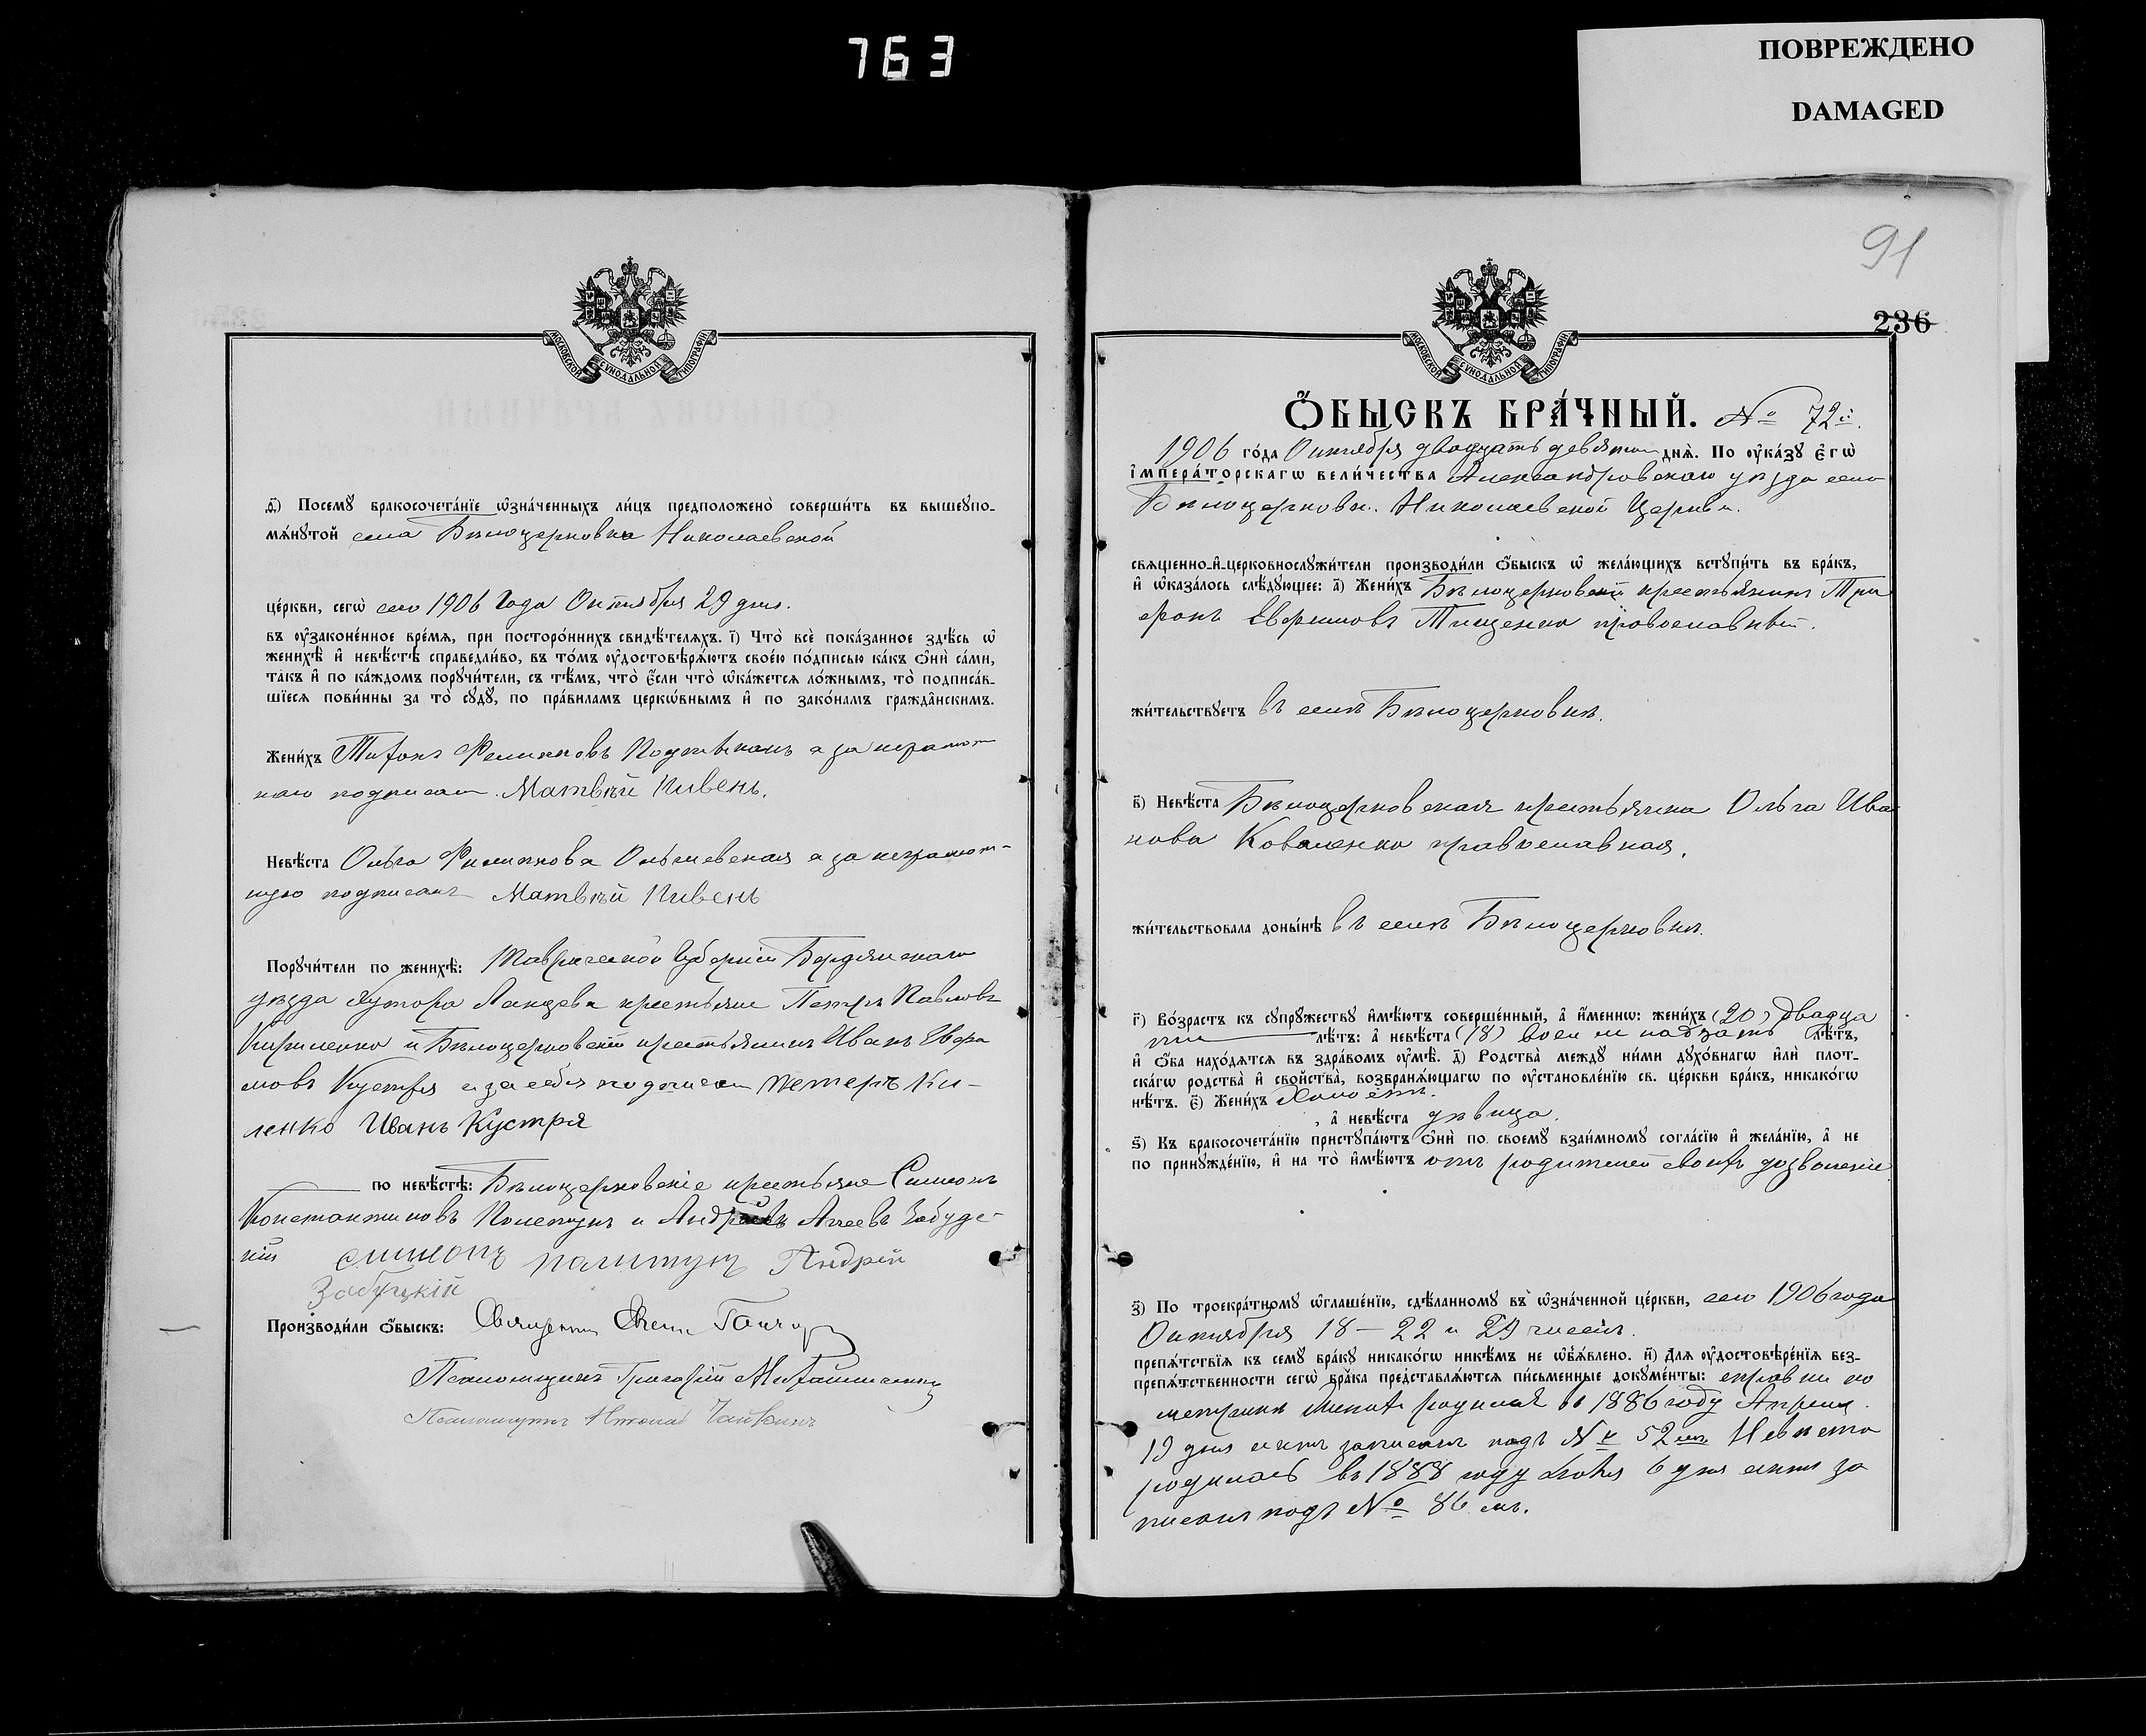 763
ПОВРЕЖДЕНО
DAMAGED
МОСКОВСКОЙ СѴНОДАЛЬНОЙ ТИПОГРАФІИ
ѳ҃) Посемꙋ бракосочета́нїе ѡ҆зна́ченныхъ ли́цъ предположено̀ соверши́ть въ вышеꙋпо-
мѧ́нꙋтой села Бѣлоцерковка Николаевской
це́ркви, сегѡ̀ сего 1906 Года Октября 29 дня.
въ ᲂу҆законе́нное вре́мѧ, при посторо́ннихъ свидѣ́телѧхъ. і҃) Что̀ всѐ пока́занное здѣ́сь ѡ҆
женихѣ̀ и҆ невѣ́стѣ справедли́во, въ то́мъ ᲂу҆достовѣрѧ́ютъ свое́ю по́дписью ка́къ ѻ҆нѝ са́ми,
та́къ и҆ по ка́ждомъ порꙋчи́тели, съ тѣ́мъ, что̀ є҆́сли что̀ ѡ҆ка́жетсѧ ло́жнымъ, то̀ подписа́в-
шїесѧ пови́нны за то̀ сꙋдꙋ̀, по пра́виламъ церкѡ́внымъ и҆ по зако́намъ гражда́нскимъ.
Жени́хъ Тихонъ Филиповъ а за неграмот
наго подписалъ Матвѣй Пивень.
Невѣ́ста Ольга Филипова Ольшевская а за неграмот-
ную подписалъ Матвѣй Пивень
Порꙋчи́тели по женихѣ̀: Таврической Губерніи Бердянскаго
уѣзда Хутора крестьяне Петръ Павловъ
Кириленко и Бѣлоцерковскій крестьянинъ Иванъ Ефи
мовъ Кустря а за себя подписали Петеръ Ки-
ленко Иванъ Кустря
по невѣ́стѣ: Бѣлоцерковскіе крестьяне Симеонъ
Константиновъ и Андрей Забуде-
кій симеонъ палитукъ Андрій
Забуцкій
Производи́ли ѻ҆́быскъ: Священник
Псаломщикъ Григорій
Псаломщикъ Николай
91
236
МОСКОВСКОЙ СѴНОДАЛЬНОЙ ТИПОГРАФІИ
Ѻ҆́БЫСКЪ БРА́ЧНЫЙ. № 72й.
1906 го́да Октября двадцать девятаго днѧ̀. По ᲂу҆ка́зꙋ є҆гѡ̀
і҆мпера́торскагѡ вели́чества Александровскаго уѣзда села
Бѣлоцерковки Николаевской Церкви.
свѧще́нно-и҆-церковнослꙋжи́тели производи́ли ѻ҆́быскъ ѡ҆ жела́ющихъ встꙋпи́ть въ бра́къ,
и҆ ѡ҆каза́лось слѣ́дꙋющее: а҃) Жени́хъ Бѣлоцерковскій крестьянинъ Три
фонъ Ефимовъ Тищенко православный.
жи́тельствꙋетъ въ селѣ Бѣлоцерковкѣ.
в҃) Невѣ́ста Бѣлоцерковская крестьянка Ольга Ива
нова Коваленко православная.
жи́тельствовала доны́нѣ въ селѣ Бѣлоцерковкѣ.
г҃) Во́зрастъ къ сꙋпрꙋ́жествꙋ и҆мѣ́ютъ соверше́нный, а҆ и҆́меннѡ: жени́хъ (20) двадца
ти лѣ́тъ: а҆ невѣ́ста (18) восемнадцать лѣ́тъ,
и҆ ѻ҆́ба нахо́дѧтсѧ въ здра́вомъ ᲂу҆мѣ̀. д҃) Родства̀ междꙋ̀ ни́ми дꙋхо́внагѡ и҆лѝ пло́т-
скагѡ родства̀ и҆ сво́йства, возбранѧ́ющагѡ по ᲂу҆становле́нїю св. це́ркви бра́къ, никако́гѡ
нѣ́тъ. є҃) Жени́хъ Холостъ.
, а҆ невѣ́ста дѣвица.
ѕ҃) Къ бракосочета́нїю пристꙋпа́ютъ ѻ҆нѝ по своемꙋ̀ взаи́мномꙋ согла́сїю и҆ жела́нїю, а҆ не
по принꙋжде́нїю, и҆ на то̀ и҆мѣ́ютъ отъ родителей своихъ дозволеніе
з҃) По троекра́тномꙋ ѡ҆глаше́нїю, сдѣ́ланномꙋ въ ѡ҆зна́ченной це́ркви, сего 1906 года
Октября 18 – 22 и 29 чиселъ.
препѧ́тствїѧ къ семꙋ̀ бра́кꙋ никако́гѡ никѣ́мъ не ѡ҆б̾ѧ́влено. и҃) Длѧ ᲂу҆достовѣре́нїѧ без-
препѧ́тственности сегѡ̀ бра́ка представлѧ́ютсѧ пи́сьменные докꙋме́нты: справки по
метрикѣ женихъ родился въ 1886 году Апреля
19 дня актъ записанъ подъ № 52мъ Невѣста
родилась въ 1888 году Іюля 6 дня актъ за
писанъ подъ № 86 мъ.